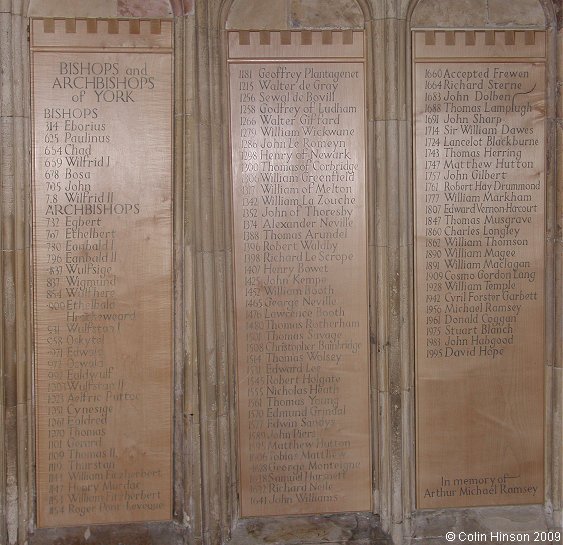 BISHOPS and
ARCHBISHOPS
of YORK
BISHOPS
314 Eborius
625 Paulinus
664 Chad
Wilfrid I
678 Bosa
705 John
718 Wilfrid II
ARCHBISHOPS
732 Egbert
767 Ethelbert
780 Eanbald I
796 Eanbald II
Wulfsige
837 Wigmund
854 Wulfhere
900 Ethelbald
Hrotheweard
931 Wulfstan I
958 Oskytel
971 Edwald
Oswald
Ealdwulf
Wulfstan II
Aelfric Puttoc
Cynesige
Ealdred
Thomas
1101 Gerard
1109 Thomas II
1119 Thurstan
William Fitzherbert
1147 Henry Murdac
1153 William Fitzherbert
1154 Roger Pont Leveque
1181 Geoffrey Plantagenet
1215 Walter de Gray
1256 Sewal de Bovill
1258 Godfrey of Ludham
1266 Walter Giffard
1279 William Wickwane
1286 John Le Romeyn
1298 Henry of Newark
1300 Thomas of Corbridge
William Greenfield
1317 William of Melton
1342 William La Zouche
1352 John of Thoresby
1374 Alexander Neville
1388 Thomas Arundel
1396 Robert Waldby
1398 Richard Le Scrope
1407 Henry Bowet
1425 John Kempe
1452 William Booth
1465 George Neville
1476 Lawrence Booth
1480 Thomas Rotherham
1501 Thomas Savage
1508 Christopher Bainbridge
1514 Thomas Wolsey
1531 Edward Lee
1545 Robert Holgate
1555 Nicholas Heath
1561 Thomas Young
1570 Edmund Grindal
1577 Edwin Sandys
1589 John Piers
1595 Matthew Hutton
1606 Tobias Matthew
1628 George Monteigne
1628 Samuel Harsnett
1632 Richard Neile
1641 John Williams
1660 Accepted Frewen
1664 Richard Sterne
1683 John Dolben
1688 Thomas Lamplugh
1691 John Sharp
1714 Sir William Dawes
1724 Lancelot Blackburne
1743 Thomas Herring
1747 Matthew Hutton
1757 John Gilbert
1761 Robert Hay Drummond
1777 William Markham
1807 Edward Vernon Harcourt
1847 Thomas Musgrave
1860 Charles Longley
1862 William Thomson
1890 William Magee
1891 William Maclagan
1909 Cosmo Gordon Lang
1928 William Temple
1942 Cyril Forster Garbett
1956 Michael Ramsey
1961 Donald Coggan
1975 Stuart Blanch
1983 John Habgood
1995 David Hope
In memory of
Arthur Michael Ramsey
© Colin Hinson 2009